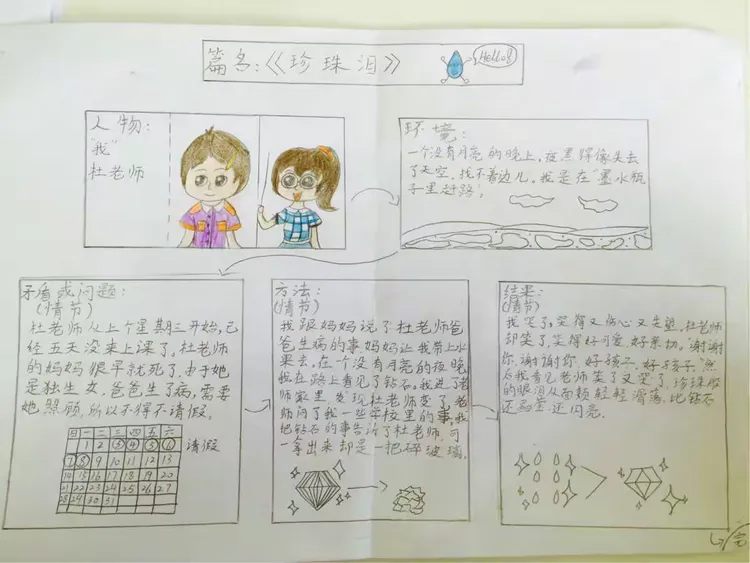 篇名:《珍珠泪》
Hello!
人物:
"我"
杜老师
环境:
一个没有月亮的晚上,夜黑得像失去
了天空,找不着边儿。我是在"墨水瓶
子里赶路"。
矛盾或问题:
(情节)
杜老师从上个星期三开始,已
经五天没来上课了。杜老师
的妈妈很早就死了。由于她
是独生女,爸爸生了病,需要
她照顾,所以不得不请假。
日一二三四五六
1 2 3 4 5 6
7 8 9 10 11 12 13
14 15 16 17 18 19 20
21 22 23 24 25 26 27
28 29 30 31
请假
方法:
(情节)
我跟妈妈说了杜老师爸
爸生病的事。妈妈让我带上水
果去。在一个没有月亮的夜晚
我在路上看见了钻石。我进了老
师家里,发现杜老师变了。老
师问了我一些学校里的事。我
把钻石的事告诉了杜老师,可
一拿出来却是一把碎玻璃。
结果:
(情节)
我哭了,哭得又伤心又失望。杜老师
却笑了,笑得好可爱,好亲切。"谢谢
你,谢谢你,好孩子,好孩子。"然
后我看见老师笑了又哭了,珍珠般
的眼泪从面颊轻轻滑落,比钻石
还晶莹还闪亮。
完